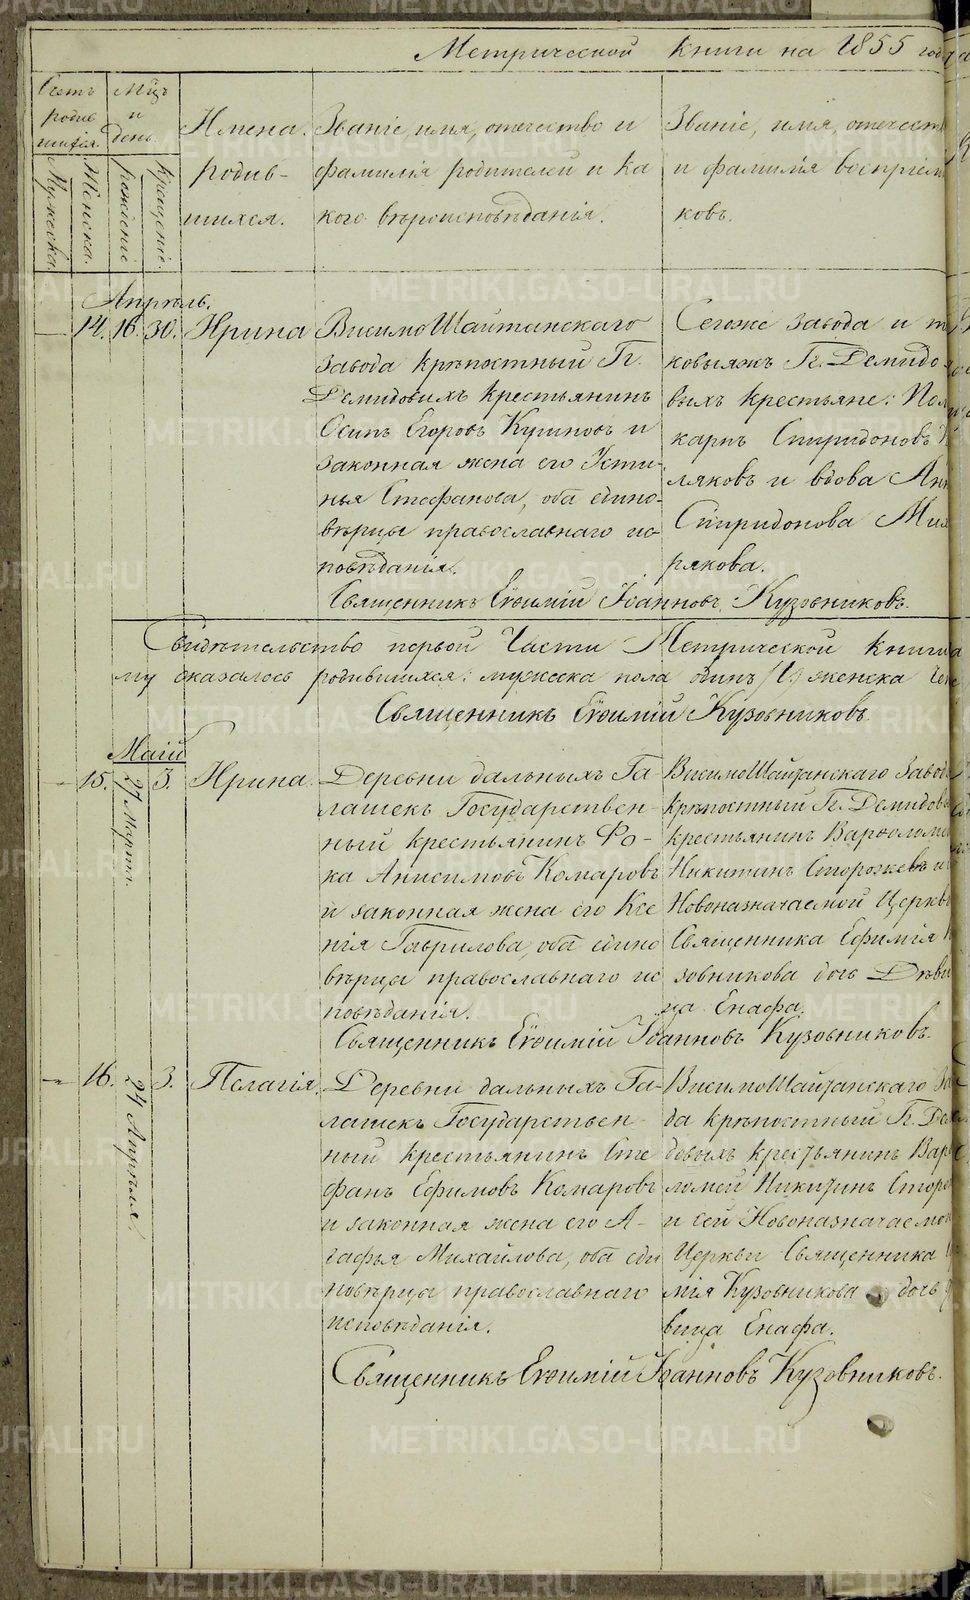 Метрической книги на 1855 год
Счетъ родившихся.
Мужеска.
Женска.
Мѣцъ и день.
рожденіе
крещеніе.
Имена родив-
шихся.
Званіе, имя, отечество и
фамилія родителей и ка
кого вѣроисповѣданія.
Званіе, имя, отечест
и фамилія воспріем
ковъ.
Апрѣль.
14. 16. 30. Ирина
ВисимоШайтанскаго
завода крѣпостный Гг.
Демидовыхъ крестьянинъ
Осипъ Егоровъ и
законная жена его Усти-
нья Стефанова, оба едино-
вѣрцы православнаго ис-
повѣданія.
Сегоже завода и т
ковыяжъ Гг. Демидо
выхъ крестьяне: Пол
карпъ Спиридоновъ
ляковъ и вдова Анн
Спиридонова
рякова.
Священникъ Евѳимій Іоанновъ Кузовниковъ.
Свидѣтельство первой Части Метрической книги
му оказалось родившихся: мужеска пола одинъ /1/ женска
Священникъ Евѳимій Кузовниковъ.
Маій
15. 27 Марта. 3. Ирина.
Деревни дальныхъ Га
лашекъ Государствен-
ный крестьянинъ Фо-
ка Анисимовъ Комаровъ
и законная жена его Ксе
нія Гаврилова, оба едино
вѣрцы православнаго ис
повѣданія.
ВисимоШайтанскаго Заво
крѣпостный Гг. Демидов
крестьянинъ Варѳоломе
Никитинъ Сторожевъ и
Новоназначаемой Церкв
Священника Ефимія
зовникова дочь Дѣви
ца Енафа.
Священникъ Евѳимій Іоанновъ Кузовниковъ.
16. 24 Апрѣля. 3. Пелагія.
Деревни дальныхъ Га-
лашекъ Государствен-
ный крестьянинъ Сте
фанъ Ефимовъ Комаровъ
и законная жена его А-
гафья Михайлова, оба еди
новѣрцы православнаго
исповѣданія.
ВисимоШайтанскаго За
да крѣпостный Гг. Де
довыхъ крестьянинъ Вар
ломей Никитинъ Сторо
и сей Новоназначаемо
Церкви Священника
мія Кузовникова дочь
вица Енафа.
Священникъ Евѳимій Іоанновъ Кузовниковъ.
METRIKI.GASO-URAL.RU